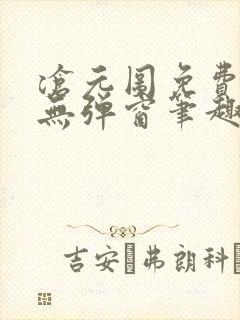 滄元圖免費
無彈窗筆趣
吉安·弗朗科